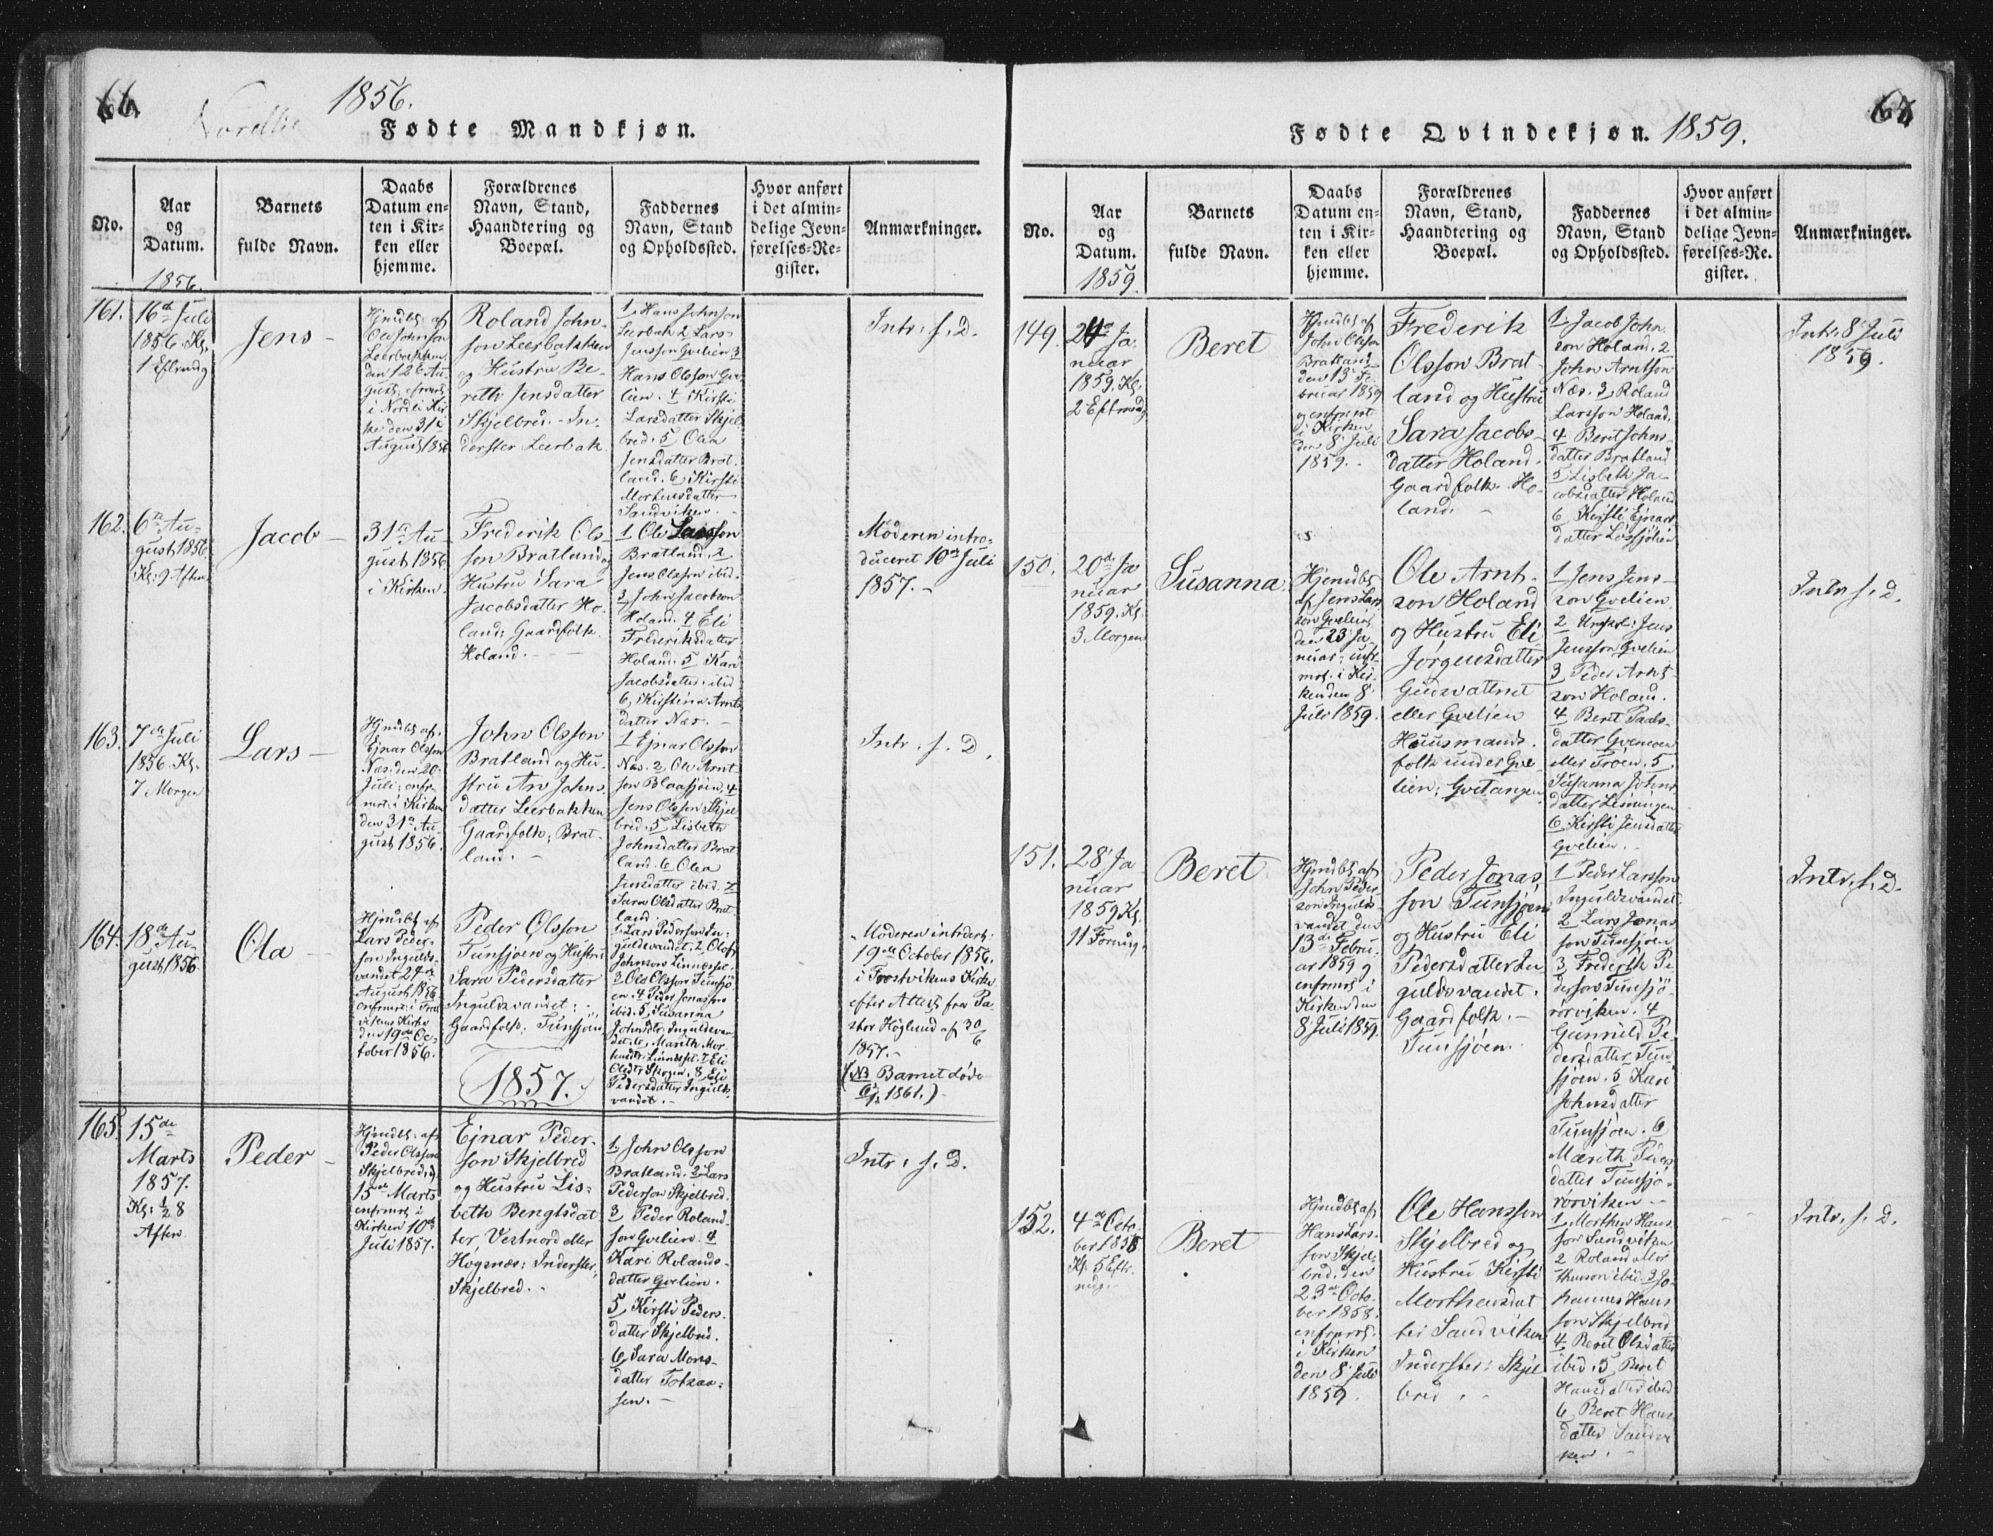 66.
1856.
Fødte Mandkjøn.
No.
Aar
og
Datum.
Barnets
fulde Navn.
Daabs
Datum en-
ten i Kir-
ken eller
hjemme.
Forældrenes
Navn, Stand,
Haandtering og
Boepæl.
Faddernes
Navn, Stand
og Opholdssted.
Hvor anført
i det almin-
delige Jevn-
førelses-Re-
gister.
Anmærkninger.
1856.
161.
16de Juli
1856. Kl.
1 Eftrmdg
Jens
Hjmdbt. af
Ole Johnson
Leerbakken
den 12te Au-
gust,
i Nordli Kir-
ke den 31te
August 1856
Roland John-
son Leerbakken
og Hustru Be-
reth Jensdatter
Skjelbred. - In-
derster Leerbak.
1, Hans Johnson
Leerbak 2 Lars
Jensson Gvelien 3
Hans Olsson Gve-
lien. 4 Kirsti
Larsdatter Skjel
bred. 5 Olea
Jensdatter Brat-
land. 6, Kirsti
Morhensdatter
Sandviken.
Intr. s. D.
162.
6te Au-
gust 1856
Kl. 9 Aften
Jacob
31te Au-
gust 1856
i Kirken.
Frederik Ols
son Bratland og
Hustru Sara
Jacobsdatter Ho-
land; Gaardfolk.
Holand.
1 Ole Larsson
Bratland. 2
Jens Olsson ibid.
3 John Jacobson
Holand. 4 Eli
Frederiksdatter
Holand. 5 Kari
Jacobsdatter ibid
6, Kirstina Arnts
datter Næs.
Moderen intro-
duceret 10de Juli
1857.
163.
7de Juli
1856. Kl.
7 Morgen
Lars
Hjmdbt. af
Ejnar Olsson
Næs. den 20
Juli; enfr-
mrt. i Kirken
den 31te Au-
gust 1856.
John Olsson
Bratland og Hu-
stru An Johns
datter Leerbakken
Gaardfolk; Brat-
land.
1 Ejnar Olsson
Næs. 2, Ole Arnt-
son Blaasjøen. 4
Jens Olsson Skjel
bred. 5 Lisbeth
Johnsdatter Brat
land. 6 Olea
Jensdatter ibid. 7
Sara Olsdatter Brat-
land.
Intr. s. D.
164.
18de Au-
gust 1856
Ola
Hjmdbt. af
Lars Peder-
son Ingulds-
vandet 24de
August 1856
cnfrmrt. i Frost
vikens Kirke
den 19de Oc-
tober 1856.
Peder Olsson
Tunsjøen og Hustru
Sara Pedersdatter
Inguldsvandet;
Gaardfolk. Tunsjøen
1, Lars Pederson In-
guldsvandet, 2, Olof
Johnson Linnessel
3 Ole Olsson Tunsjø
en. 4 Peder Jonasson
ibid. 5, Susanna
Johnsdtr. Inguldsvan-
det. 6, Marith Mor-
tensdtr. Linnessel. 7 Eli
Olsdtr. 8, Eli
Pedersdatter Inguld-
vandet.
Moderen introdcrt.
19de October 1856.
i Frostvikens Kirke
efter Attest fra Pa-
stor Høglund af 30/6
1857.
(NB Barnet døde
1861.)
1857.
165.
15de
Marts
1857.
Kl. 1/2 8
Aften
Peder
Hjmdbt. af
Peder Olsson
Skjelbred d.
15de Marts
cnfrmrt. i
Kirken 10de
Juli 1857.
Ejnar Peder-
son Skjelbred
og Hustru Lis-
beth Bengtsdat-
ter Vestnord eller
Høgsnæs; Inderster,
Skjelbred.
1, John Olsson
Bratland. 2 Lars
Pederson Skjelbred.
3 Peder Roland-
son Gvelien. 4
Kari Rolands-
datter Gvelien.
5, Kirsti Peders-
datter Skjelbred.
6, Sara Mons-
datter Totsaa-
sen.
Intr. s. D.
67
Fødte Qvindekjøn. 1859.
No.
Aar
og
Datum.
Barnets
fulde Navn.
Daabs
Datum en-
ten i Kir-
ken eller
hjemme.
Forældrenes
Navn, Stand,
Haandtering og
Boepæl.
Faddernes
Navn, Stand
og Opholdssted.
Hvor anført
i det almin-
delige Jevn-
førelses-Re-
gister.
Anmærkninger.
1859
149.
24de Ja-
nuar
1859. Kl.
2 Eftrmdg
Beret
Hjmdbt af
John Olsson
Bratland
den 13de Fe-
bruar 1859
og cnfrmrt
i Kirken
den 8de Juli
1859.
Frederik
Olsson Brat-
land og Hustru
Sara Jacobs-
datter Holand.
Gaardfolk. Ho-
land.
1, Jacob John-
son Holand. 2
John Arntson
Næs. 3, Roland
Larsson Holand.
4. Berit Johns-
datter Bratland
5 Lisbeth Ja-
cobsdatter Holand
6 Kirsti Ejnars
datter Løvsjølien
Intr. 8de Juli
1859.
150.
20de Ja-
nuar
1859. Kl.
3 Morgen
Susanna
Hjemdbt
af Jens Lars-
son Gvelien
den 23 Ja-
nuar; cnfr-
mrt. i Kir-
ken den 8de
Juli 1859.
Ole Arnt-
son Holand
og Hustru Eli
Jørgensdatter
Gudsvattnet
eller Gvelien
Huusmands-
folk under Gve-
lien; Gvetangen
1 Jens Jens-
son Gvelien.
2 Ungkrl. Jens
Jensson Gvelien
3 Peder Arnt-
son Holand.
4. Beret Paals-
datter Gveneoen
eller Troen. 5
Susanna Johns
datter Leningen
6, Kirsti Jensdatter
Gvelien.
Intr s. D.
151.
28de Ja-
nuar
1859 Kl.
11 Formdg.
Beret
Hjmdbt af
John Peder
son Ingulds-
vandet den
13de Febru-
ar 1859 og
cnfrmrt i
Kirken den
8de Juli 1859.
Peder Jonas-
son Tunsjøen
og Hustru Eli
Pedersdatter In-
guldsvandet.
Gaardfolk.
Tunsjøen.
1 Peder Larsson
Inguldsvandet
2. Lars Jonas
son Tunsjøen
3 Frederik Pe-
derson Tunsjø-
rørviken. 4
Gunnild Pe-
dersdatter Tun-
sjøen. 5 Kari
Johnsdatter
Tunsjøen. 6
Marith Peders
datter Tunsjø-
rørviken
Intr. s. D.
152.
4de Octo-
ber 1858
Kl. 5 Eftr-
mdg.
Beret
Hjmdbt af
Hans Lars-
son Skjel
bred; den
23de Octo-
ber 1858.
cnfrmrt.
i Kirken
den 8de Juli
1859.
Ole Hansson
Skjelbred og
Hustru Kirsti
Morthensdat
ter Sandviken
Inderster; Skjel
bred.
1. Morthen Hans
son Sandviken
2 Roland Mor
thenson ibid. 3 Jo-
hannes Hans
son Skjelbred
4. Beret Olsdatter
ibid. 5, Beret
Hansdatter ibid
6, Beret Hans
datter Sandvi
ken.
Intr. s. D.